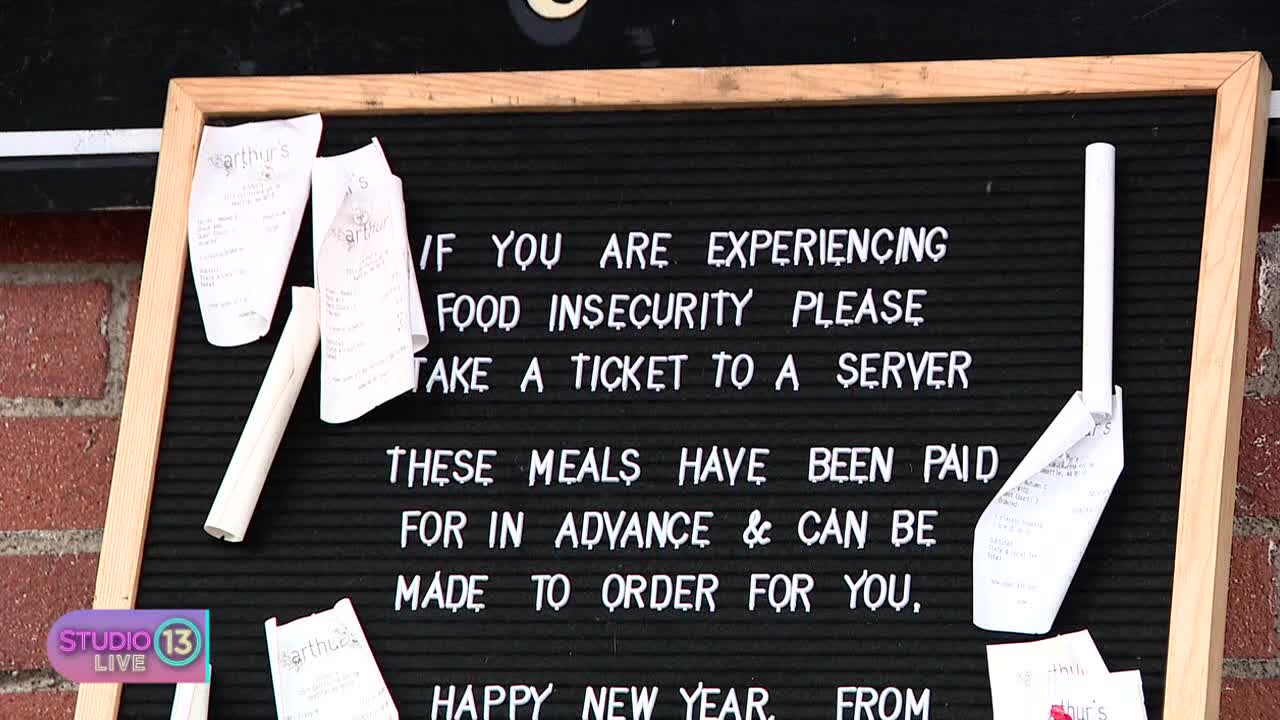 arthur's
arthur's
IF YOU ARE EXPERIENCING
FOOD INSECURITY PLEASE
TAKE A TICKET TO A SERVER
THESE MEALS HAVE BEEN PAID
FOR IN ADVANCE & CAN BE
MADE TO ORDER FOR YOU.
HAPPY NEW YEAR. FROM
arthur's
STUDIO 13
LIVE